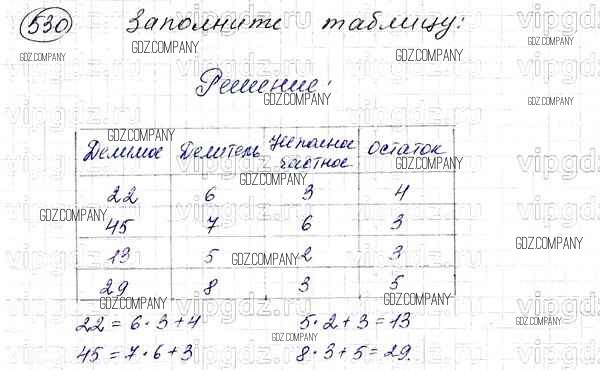 530 Заполните таблицу:
GDZ.COMPANY
Решение:
Делимое Делитель Неполное частное Остаток
22 6 3 4
45 7 6 3
13 5 2 3
29 8 3 5
22 = 6 · 3 + 4 5 · 2 + 3 = 13
45 = 7 · 6 + 3 8 · 3 + 5 = 29.
vipgdz.ru